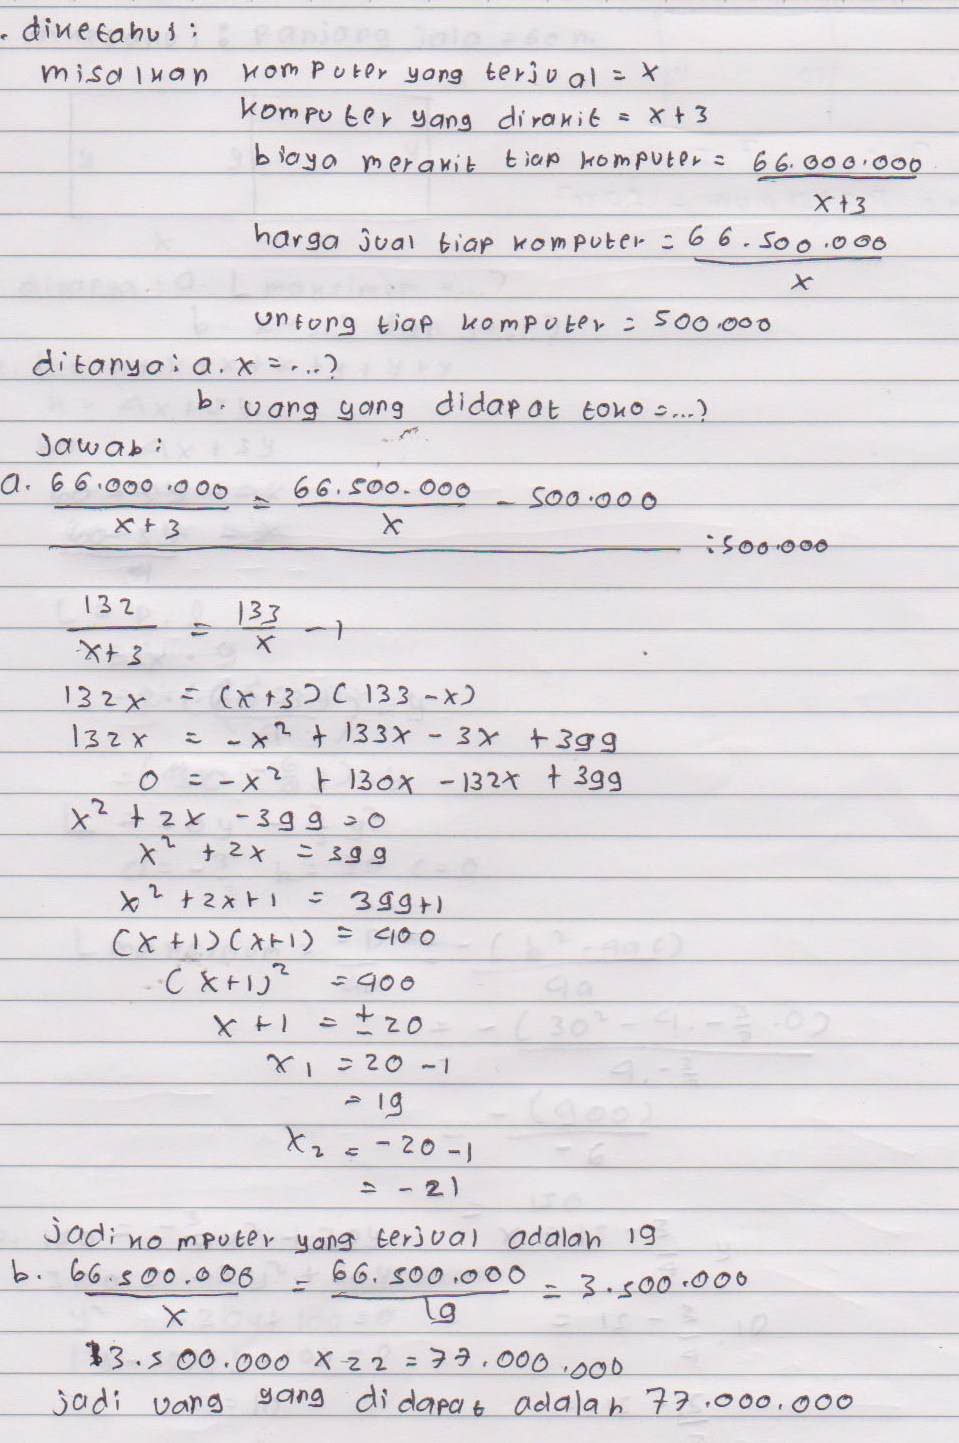 . diketahui:
misalkan komputer yang terjual = x
komputer yang dirakit = x+3
biaya merakit tiap komputer = 66.000.000 / x+3
harga jual tiap komputer = 66.500.000 / x
untung tiap komputer = 500.000
ditanya: a. x = ...?
b. uang yang didapat toko = ...?
Jawab:
a. 66.000.000 / x+3 = 66.500.000 / x - 500.000
: 500.000
132 / x+3 = 133 / x - 1
132x = (x+3)(133-x)
132x = -x² + 133x - 3x + 399
0 = -x² + 130x - 132x + 399
x² + 2x - 399 = 0
x² + 2x = 399
x² + 2x + 1 = 399+1
(x+1)(x+1) = 400
(x+1)² = 400
x + 1 = ± 20
x₁ = 20 - 1
= 19
x₂ = -20 - 1
= -21
jadi komputer yang terjual adalah 19
b. 66.500.000 / x = 66.500.000 / 19 = 3.500.000
3.500.000 x 22 = 77.000.000
jadi uang yang didapat adalah 77.000.000